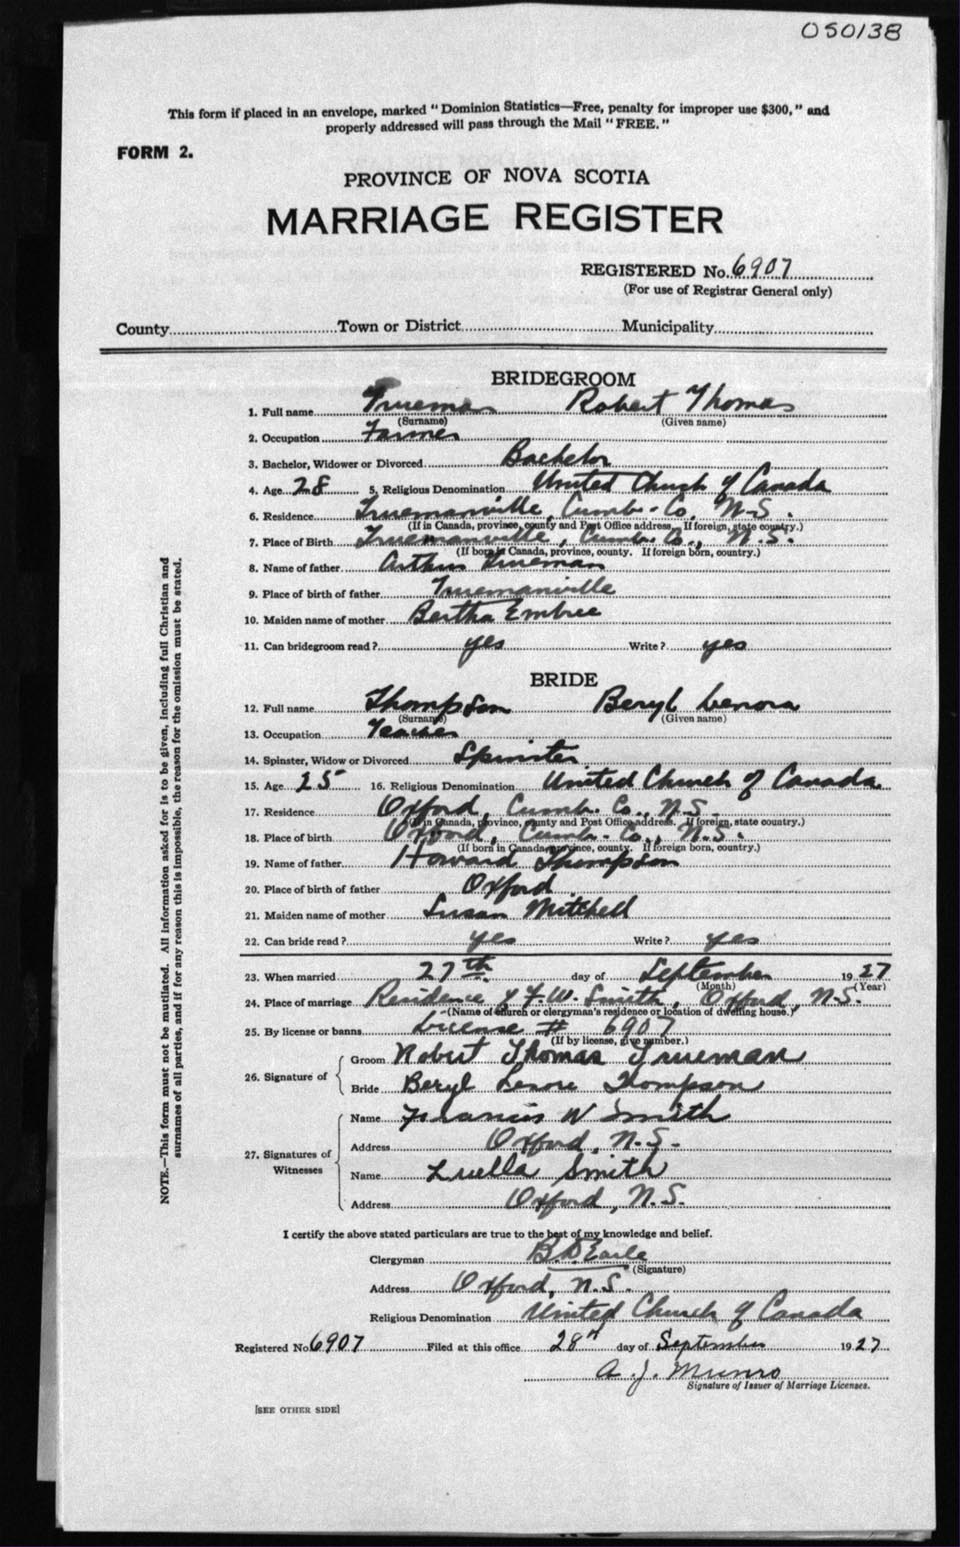 050138
This form if placed in an envelope, marked "Dominion Statistics—Free, penalty for improper use $300," and
properly addressed will pass through the Mail "FREE."
FORM 2.
PROVINCE OF NOVA SCOTIA
MARRIAGE REGISTER
REGISTERED No. 6907
(For use of Registrar General only)
County Town or District Municipality
BRIDEGROOM
1. Full name Trueman Robert Thomas
(Surname) (Given name)
2. Occupation Farmer
3. Bachelor, Widower or Divorced Bachelor
4. Age 28 5. Religious Denomination United Church of Canada
6. Residence Truemanville, Cumb. Co. N.S.
(If in Canada, province, county and Post Office address. If foreign, state country.)
7. Place of Birth Truemanville, Cumb. Co., N.S.
(If born in Canada, province, county. If foreign born, country.)
8. Name of father Arthur Trueman
9. Place of birth of father Truemanville
10. Maiden name of mother Bertha Embree
11. Can bridegroom read? yes Write? yes
BRIDE
12. Full name Thompson Beryl Lenora
(Surname) (Given name)
13. Occupation Teacher
14. Spinster, Widow or Divorced Spinster
15. Age 25 16. Religious Denomination United Church of Canada
17. Residence Oxford, Cumb. Co., N.S.
(If in Canada, province, county and Post Office address. If foreign, state country.)
18. Place of birth Oxford, Cumb. Co., N.S.
(If born in Canada, province, county. If foreign born, country.)
19. Name of father Howard Thompson
20. Place of birth of father Oxford
21. Maiden name of mother Susan Mitchell
22. Can bride read? yes Write? yes
23. When married 27th day of September 1927
(Month) (Year)
24. Place of marriage Residence of F.W. Smith, Oxford, N.S.
(Name of church or clergyman's residence or location of dwelling house.)
25. By license or banns License # 6907
(If by license, give number.)
26. Signature of Groom Robert Thomas Trueman
Bride Beryl Lenore Thompson
27. Signatures of Witnesses Name Francis W Smith
Address Oxford, N.S.
Name Luella Smith
Address Oxford, N.S.
I certify the above stated particulars are true to the best of my knowledge and belief.
Clergyman B.D. Earle
(Signature)
Address Oxford, N.S.
Religious Denomination United Church of Canada
Registered No. 6907 Filed at this office 28th day of September 1927
A. J. Munro
Signature of Issuer of Marriage Licenses.
[SEE OTHER SIDE]
NOTE.—This form must not be mutilated. All information asked for is to be given, including full Christian and
surnames of all parties, and if for any reason this is impossible, the reason for the omission must be stated.